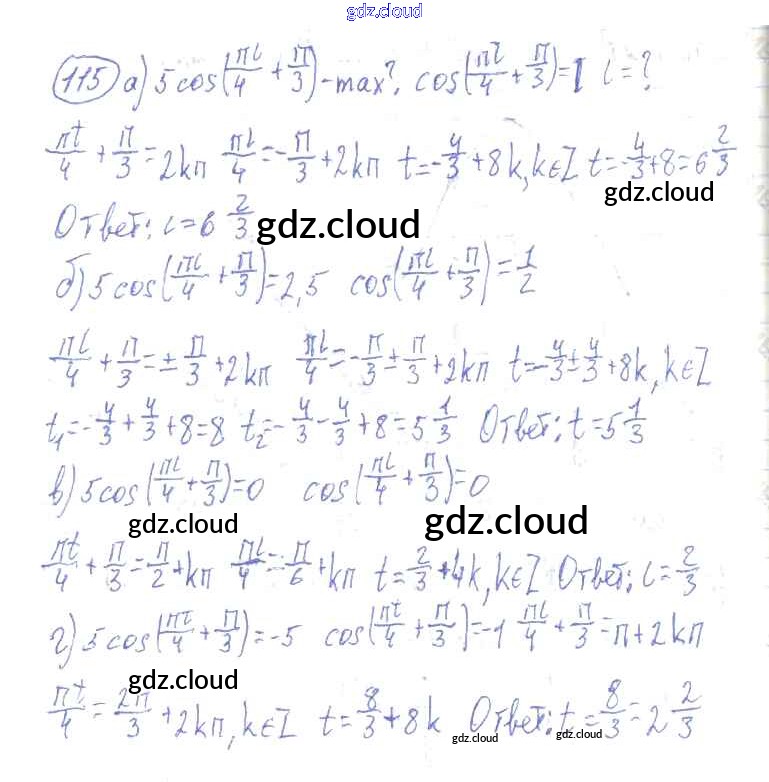 gdz.cloud
115 а) 5 cos(πt/4 + π/3) - max?, cos(πt/4 + π/3) = 1 t = ?
πt/4 + π/3 = 2kπ πt/4 = -π/3 + 2kπ t = -4/3 + 8k, k∈Z t = -4/3 + 8 = 6 2/3
gdz.cloud
Ответ: t = 6 2/3
gdz.cloud
б) 5 cos(πt/4 + π/3) = 2,5 cos(πt/4 + π/3) = 1/2
πt/4 + π/3 = ± π/3 + 2kπ πt/4 = -π/3 ± π/3 + 2kπ t = -4/3 ± 4/3 + 8k, k∈Z
t₁ = -4/3 + 4/3 + 8 = 8 t₂ = -4/3 - 4/3 + 8 = 5 1/3 Ответ: t = 5 1/3
в) 5 cos(πt/4 + π/3) = 0 cos(πt/4 + π/3) = 0
gdz.cloud gdz.cloud
πt/4 + π/3 = π/2 + kπ πt/4 = π/6 + kπ t = 2/3 + 4k, k∈Z Ответ: t = 2/3
г) 5 cos(πt/4 + π/3) = -5 cos(πt/4 + π/3) = -1 πt/4 + π/3 = π + 2kπ
gdz.cloud
πt/4 = 2π/3 + 2kπ, k∈Z t = 8/3 + 8k Ответ: t = 8/3 = 2 2/3
gdz.cloud gdz.cloud